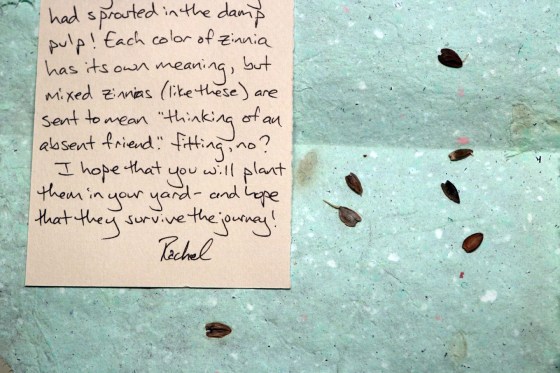 had sprouted in the damp
pulp! Each color of zinnia
has its own meaning, but
mixed zinnias (like these) are
sent to mean "thinking of an
absent friend." Fitting, no?
I hope that you will plant
them in your yard - and hope
that they survive the journey!
Rachel